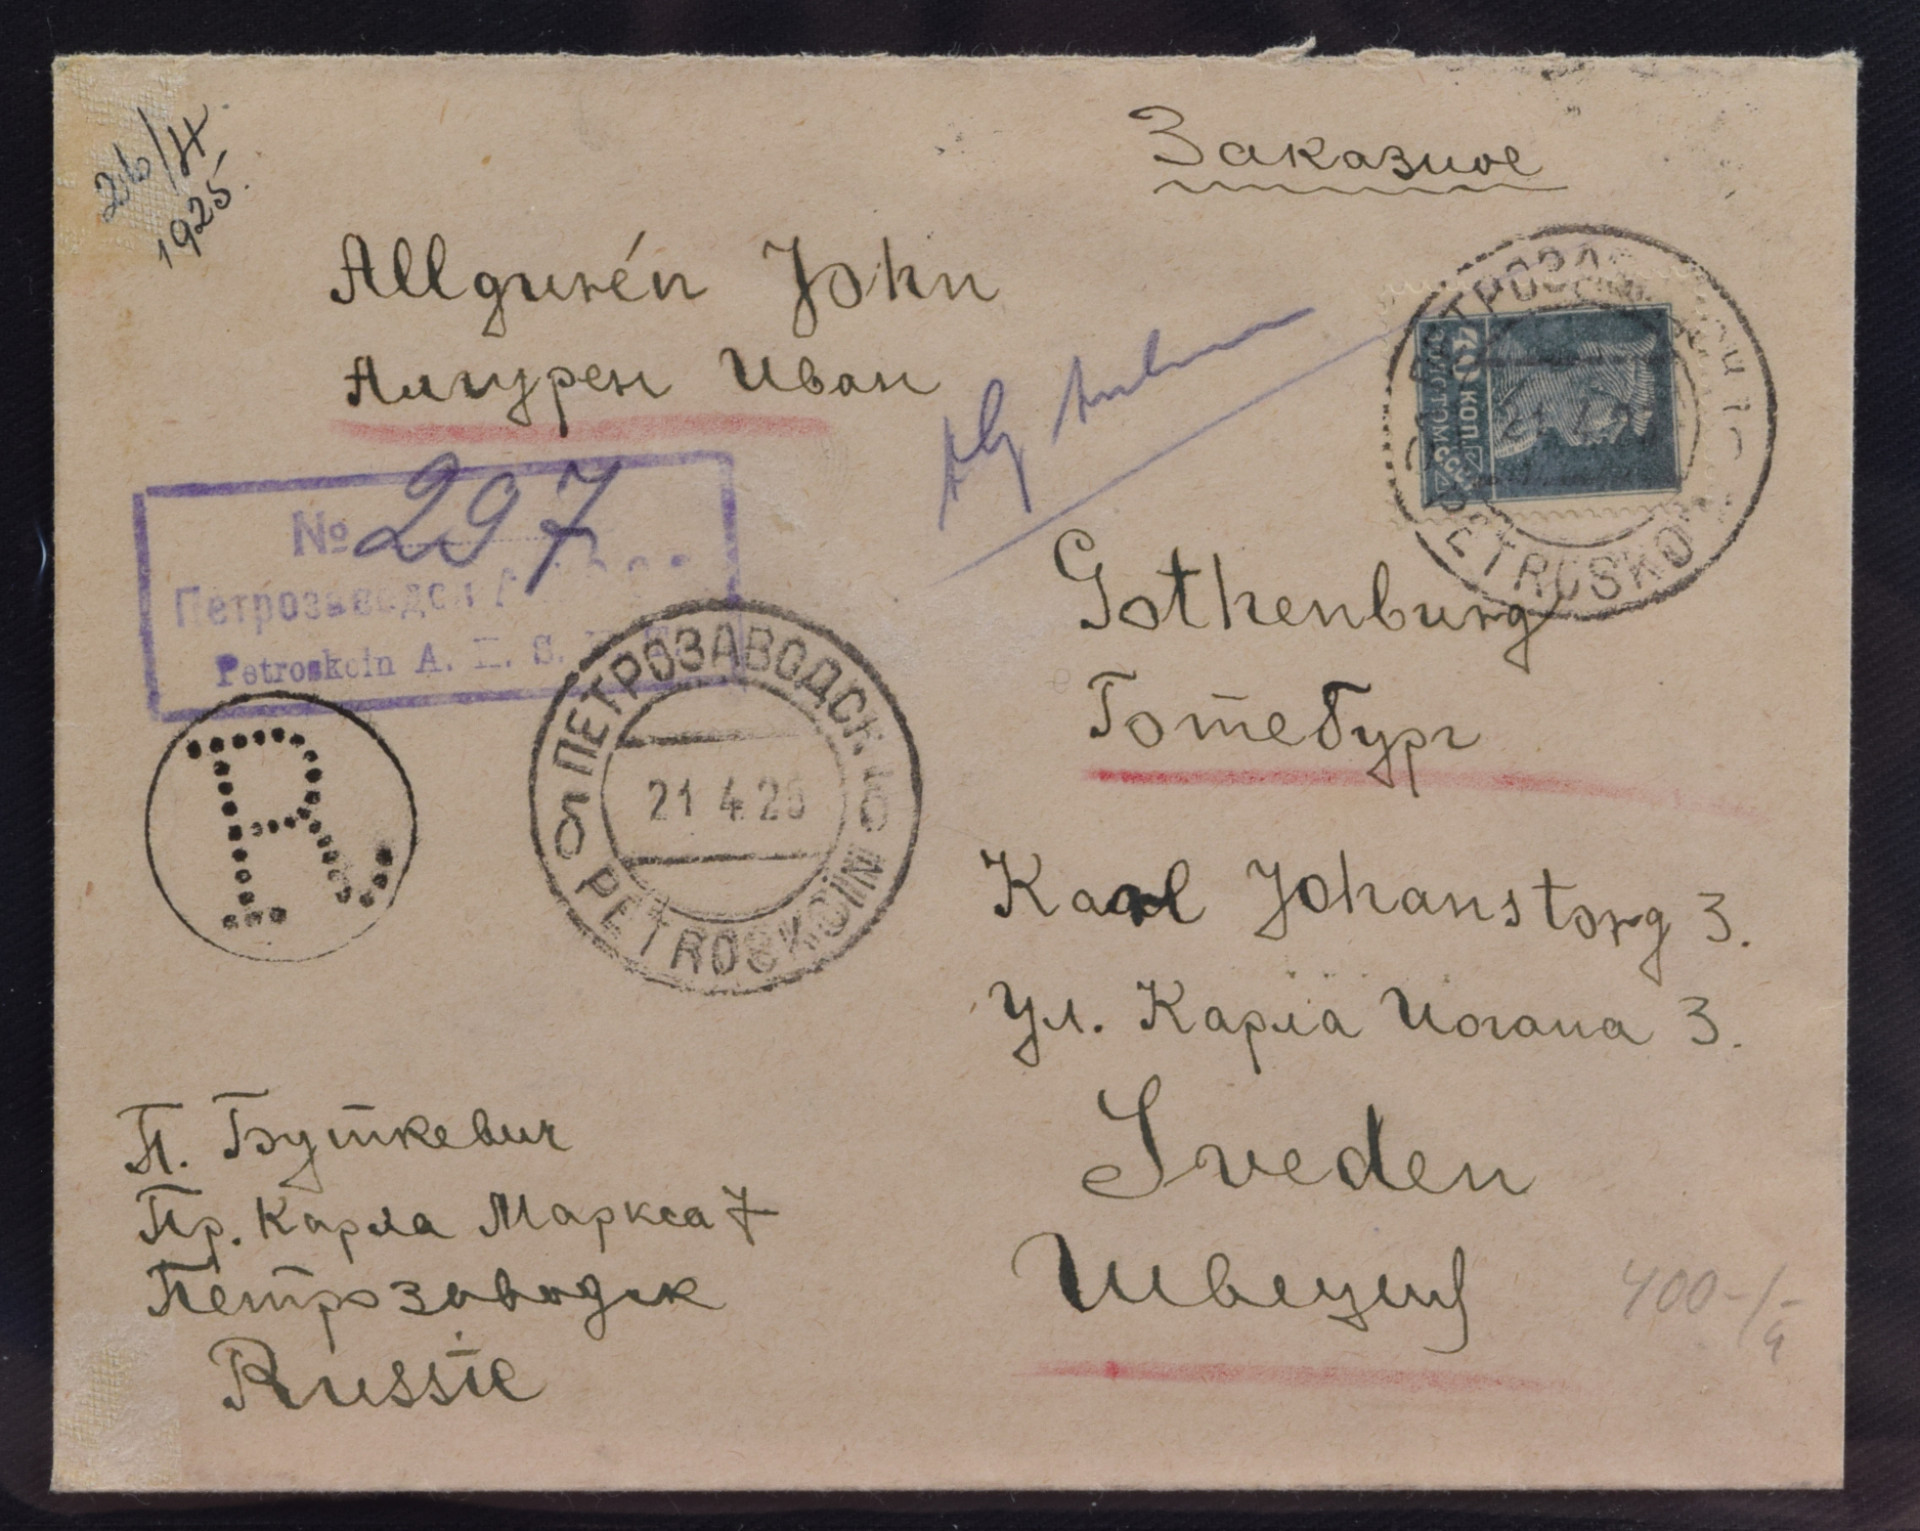 26/4
1925.
Заказное
Allgurén John
Алгурен Иван
№ 297
Петрозаводск
Petroskoin A. E. S.
R
ПЕТРОЗАВОДСК
21 4 25
PETROSKOIN
ПЕТРОЗАВ
21 4 2
PETROSKOI
40 КОП.
ПОЧТОМ СССР
Gothenburg
Готебург
Karl Johanstorg 3.
Ул. Карла Иогана 3.
Sveden
Швеция
П. Буткевич
Пр. Карла Маркса 7
Петрозаводск
Russie
400-/-